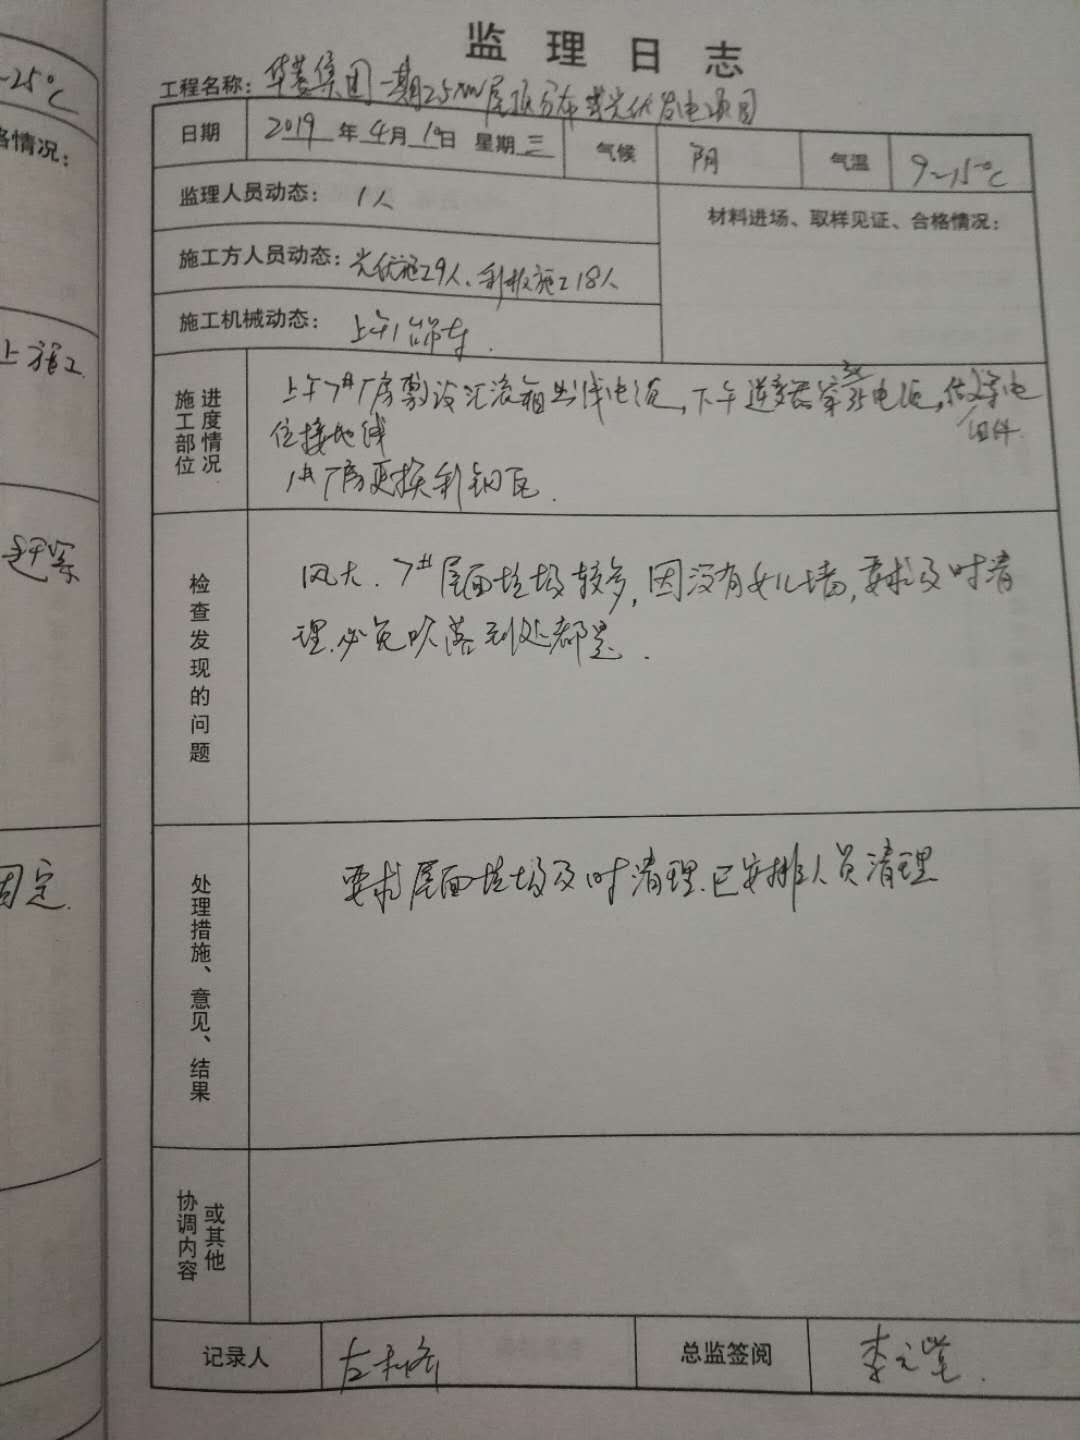 ~25℃
格情况：
上施工
固定.
监理日志
工程名称：华菱集团一期25MW屋顶分布式光伏发电项目
日期 2019年4月10日 星期三 气候 阴 气温 9~15℃
监理人员动态：1人
材料进场、取样见证、合格情况：
施工方人员动态：光伏施工9人、利板施工18人
施工机械动态：上午1台吊车.
施工部位 进度情况
上午7#厂房敷设汇流箱出线电缆，下午逆变器穿电缆，做组件等电
位接地线
1#厂房更换彩钢瓦.
检查发现的问题
风大.7#屋面垃圾较多，因没有女儿墙，要求及时清
理.必免吹落到处都是.
处理措施、意见、结果
要求屋面垃圾及时清理.已安排人员清理
协调内容 或其他
记录人 左 总监签阅 李